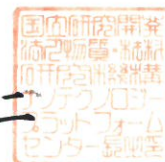 国立研究開発
法人物質・材料
研究機構
ナノテクノロジー
プラットフォーム
センター長